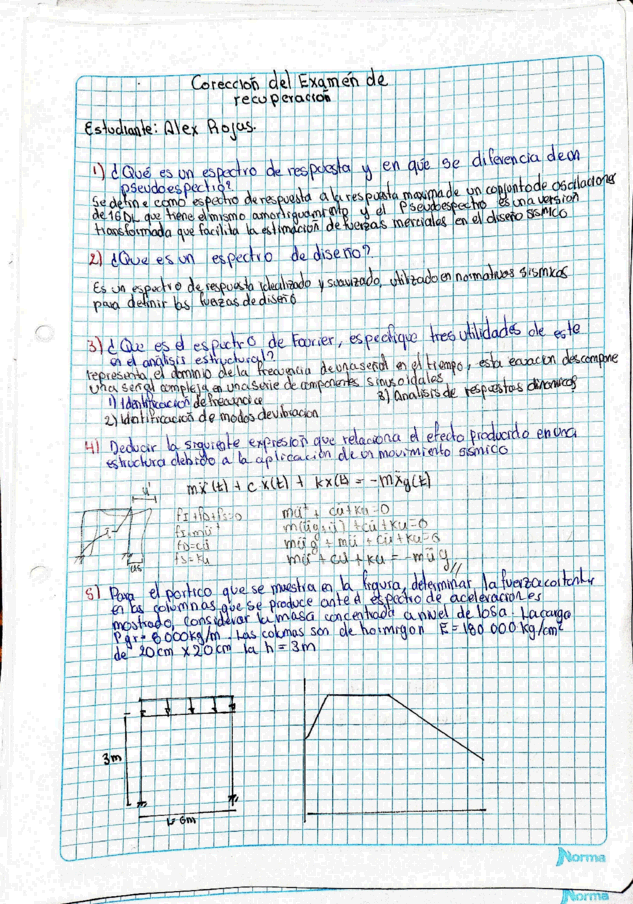 Corección del Examén de
recuperación
Estudiante: Alex Rojas.
1) ¿Qué es un espectro de respuesta y en qué se diferencia de un
pseudoespectro?
Se define como espectro de respuesta a la respuesta maxima de un conjunto de osciladores
de 1GDL que tiene el mismo amortiguamiento y el Pseudoespectro es una versión
transformada que facilita la estimación de fuerzas inerciales en el diseño sismico
2) ¿Que es un espectro de diseño?
Es un espectro de respuesta idealizado y suavizado, utilizado en normativas sismicas
para definir las fuerzas de diseño
3) ¿Que es el espectro de Fourier, especifique tres utilidades de este
en el análisis estructural?
representa el dominio de la frecuencia de una señal en el tiempo, esta ecuacion descompone
una señal compleja en una serie de componentes sinusoidales
1) Identificación de frecuencia
3) Analisis de respuestas dinamicas
2) Identificación de modos de vibracion
4) Deducir la siguiente expresión que relaciona el efecto producido en una
estructura debido a la aplicación de un movimiento sismico
mẍ(t) + cẋ(t) + kx(t) = -mẍg(t)
u^t
fI+fD+fs=0
mü^t + cu̇+ku=0
fI=mü^t
m(üg+ü) +cu̇+ku=0
fD=cu̇
müg + mü + cu̇+ku=0
fs=ku
mü + cu̇ +ku = -müg //
ug
5) Para el portico que se muestra en la figura, determinar la fuerza cortante
en las columnas que se produce ante el espectro de aceleraciones
mostrado, considerar la masa concentrada a nivel de losa. La carga
Pgr= 6000kg/m. Las columas son de hormigon E=180 000 kg/cm²
de 20cm x 20cm la h = 3m
3m
6m
Norma
Norma